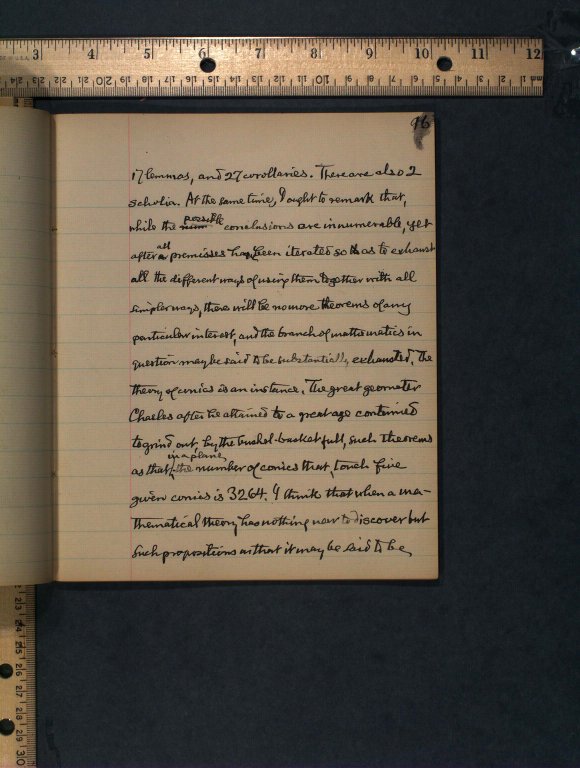 96
17 lemmas, and 27 corollaries. There are also 2
scholia. At the same time, I ought to remark that,
while the possible conclusions are innumerable, yet
after all premisses have been iterated so as to exhaust
all the different ways of using them together with all
simpler ways, there will be no more theorems of any
particular interest, and the branch of mathematics in
question may be said to be substantially exhausted. The
theory of conics is an instance. The great geometer
Chasles after he attained to a great age continued
to grind out, by the bushel-basket full, such theorems
as that in a plane the number of conics that touch five
given conics is 3264. I think that when a ma-
thematical theory has nothing new to discover but
such propositions as that it may be said to be